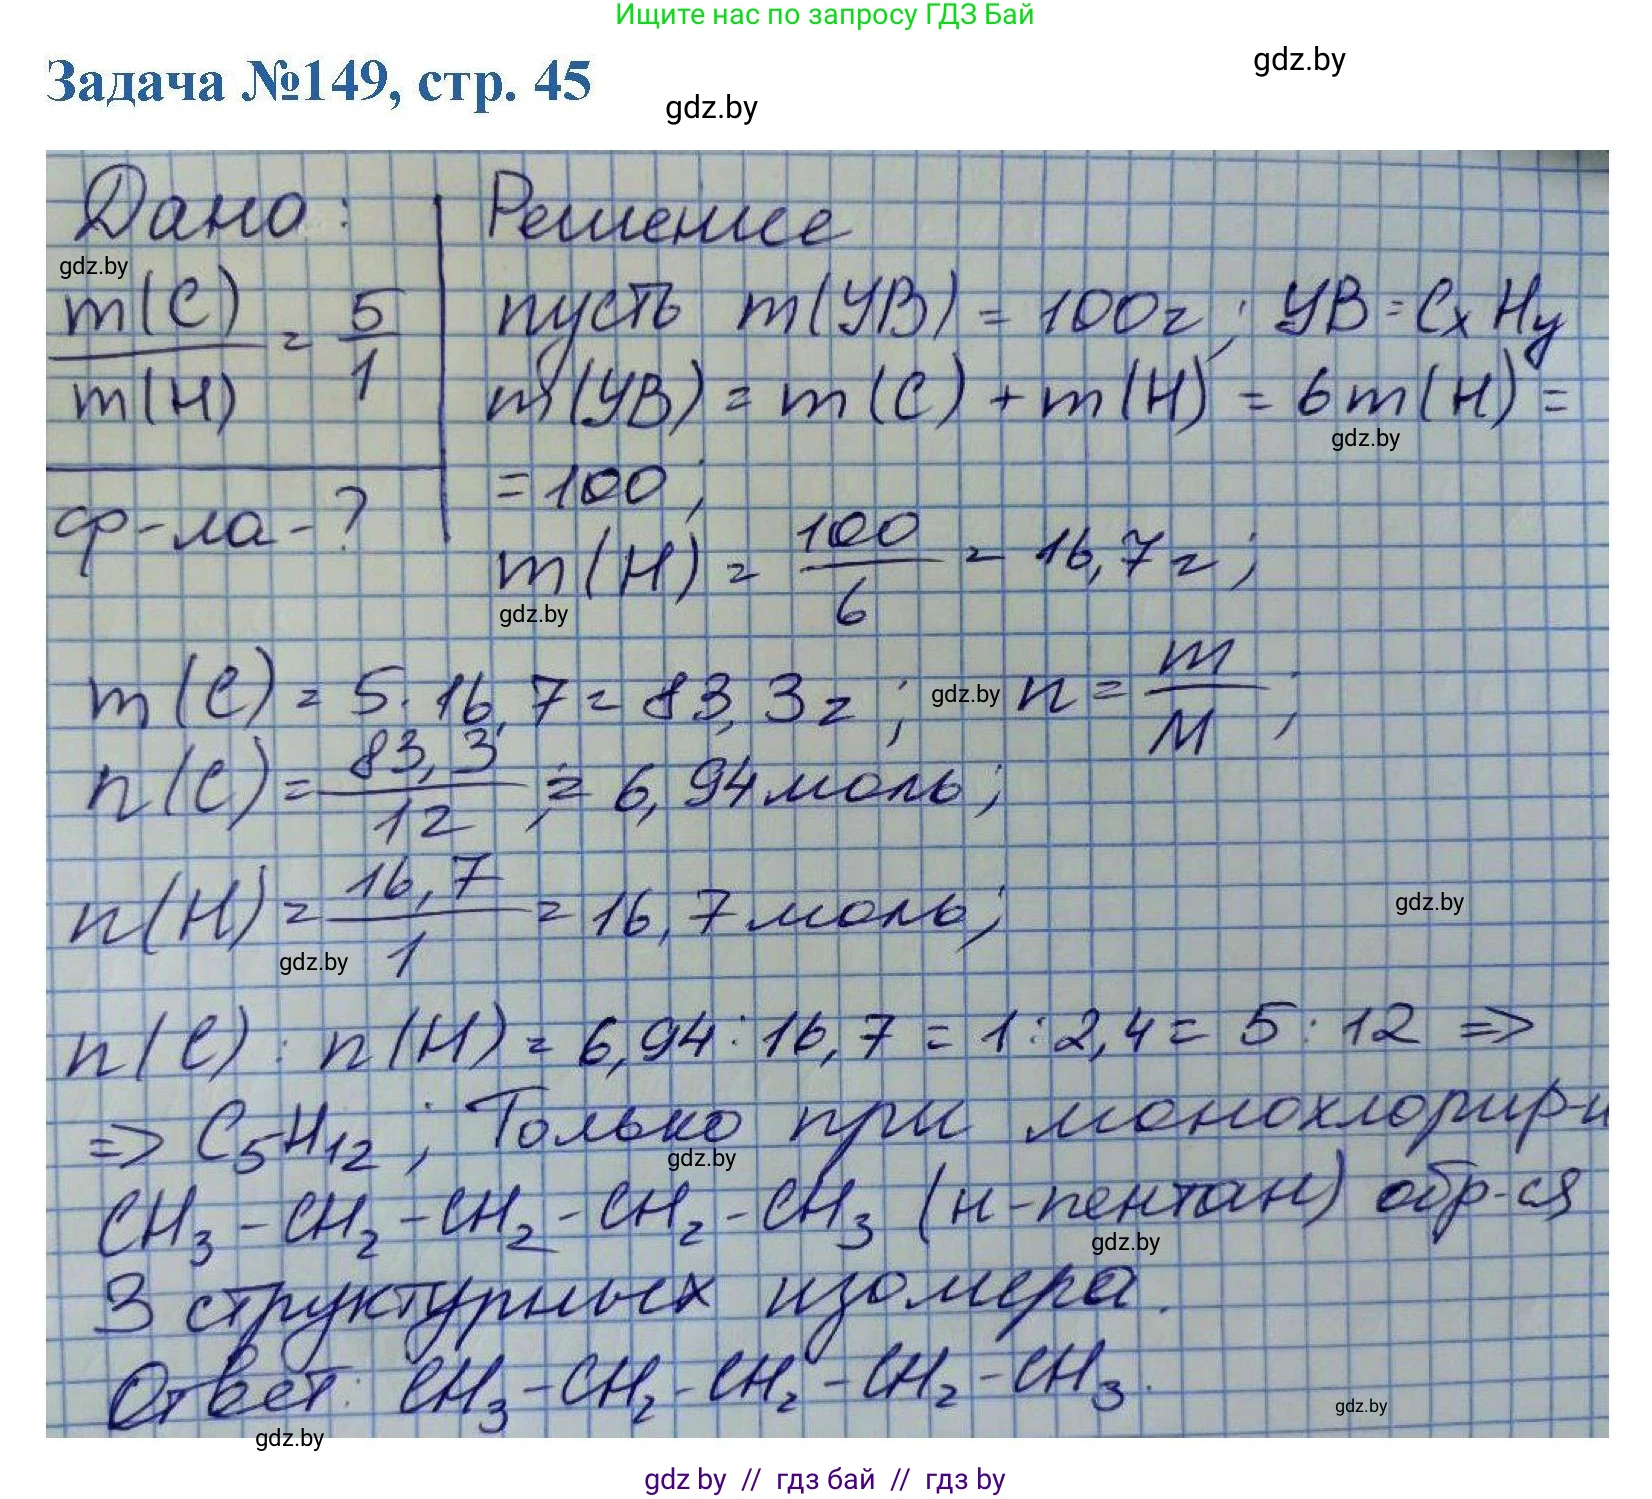 Ищите нас по запросу ГДЗ Бай
Задача №149, стр. 45
gdz.by
gdz.by
Дано:
gdz.by
m(C)/m(H) = 5/1
ф-ла-?
Решение
пусть m(УВ) = 100г; УВ = CxHy
m(УВ) = m(C) + m(H) = 6m(H) =
gdz.by
= 100;
m(H) = 100/6 = 16,7г;
gdz.by
m(C) = 5·16,7 = 83,3г; gdz.by n = m/M;
n(C) = 83,3/12 = 6,94 моль;
n(H) = 16,7/1 = 16,7 моль;
gdz.by
gdz.by
n(C) : n(H) = 6,94 : 16,7 = 1 : 2,4 = 5 : 12 =>
=> C5H12; Только при монохлорир-и
gdz.by
CH3-CH2-CH2-CH2-CH3 (н-пентан) обр-ся
gdz.by
3 структурных изомера.
Ответ: CH3-CH2-CH2-CH2-CH3.
gdz.by
gdz.by
gdz by // гдз бай // гдз by